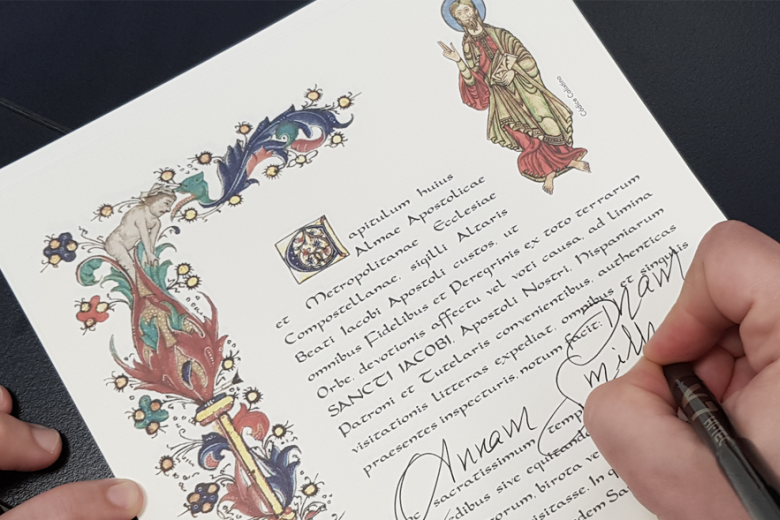 Códice Calixtino
Capitulum huius
Almae Apostolicae
et Metropolitanae Ecclesiae
Compostellanae, sigilli Altaris
Beati Iacobi Apostoli custos, ut
omnibus Fidelibus et Peregrinis ex toto terrarum
Orbe, devotionis affectu vel voti causa, ad limina
SANCTI IACOBI, Apostoli Nostri, Hispaniarum
Patroni et Tutelaris convenientibus, authenticas
visitationis litteras expediat, omnibus et singulis
praesentes inspecturis, notum facit:
Annam
hoc sacratissimum templ
dibus sive equitand